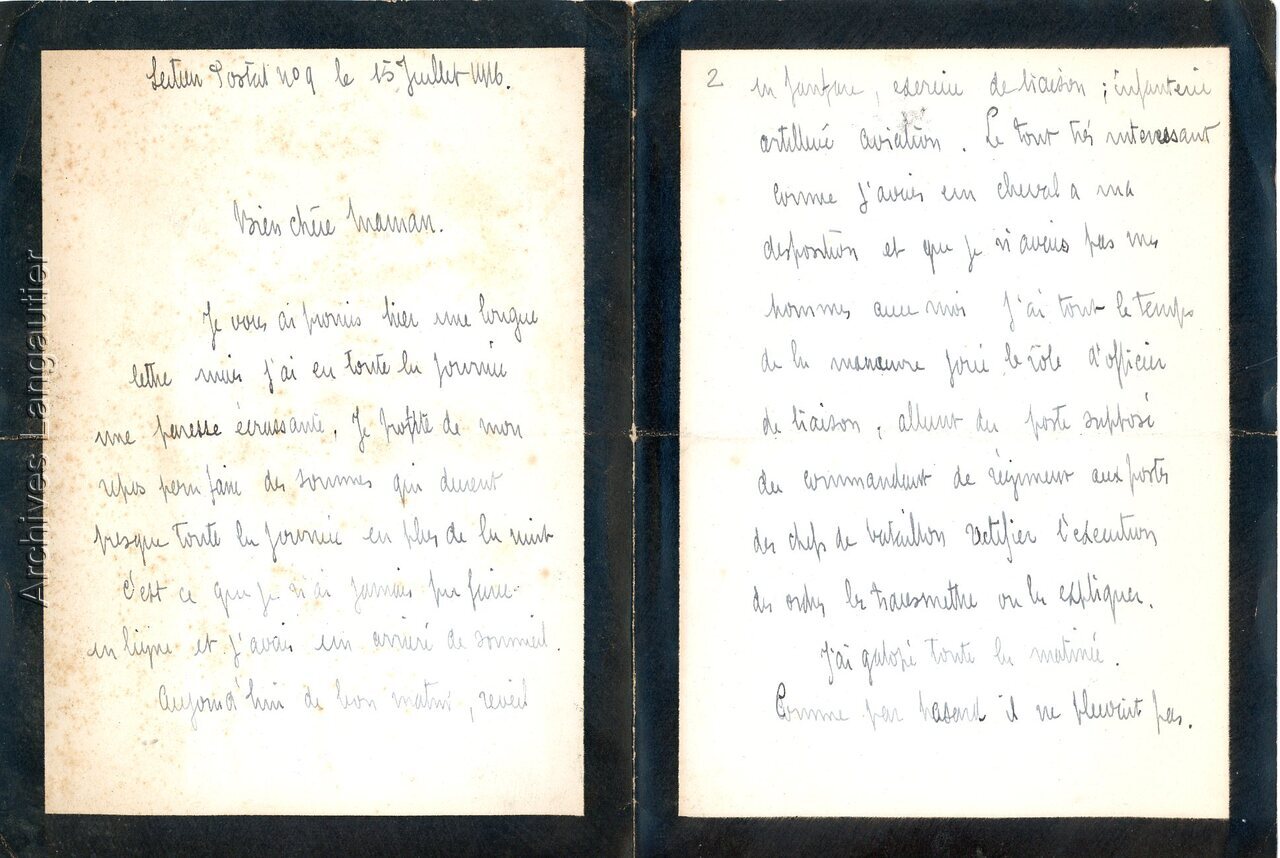 Section Postal no 9 le 15 Juillet 1916.
Bien chére Maman.
Je vous ai promis hier une longue
lettre mais j'ai eu toute la journée
une paresse écrassante. Je profite de mon
repos pour faire des sommes qui durent
presque toute la journée en plus de la nuit
c'est ce que je n'ai jamais pu faire
en ligne et j'avais un arriéré de sommeil.
Aujourd'hui de bon matin, reveil
2
en fanfare, exercice de liaison ; infanterie
artillerie aviation. Le tout trés interessant
comme j'avais un cheval a ma
disposition et que je n'avais pas mes
hommes avec moi j'ai tout le temps
de la manœuvre joué le rôle d'officier
de liaison, allant du poste supposé
du commandant de régiment aux postes
des chefs de bataillon rectifier l'execution
des ordres les transmettre ou les expliquer.
J'ai galopé toute la matinée.
Comme par hasard il ne pleuvait pas.
Archives Langautier